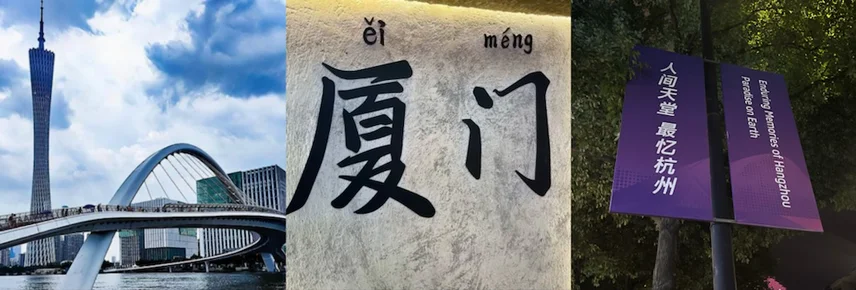 ěi méng
厦门
人间天堂 最忆杭州
Enduring Memories of Hangzhou
Paradise on Earth